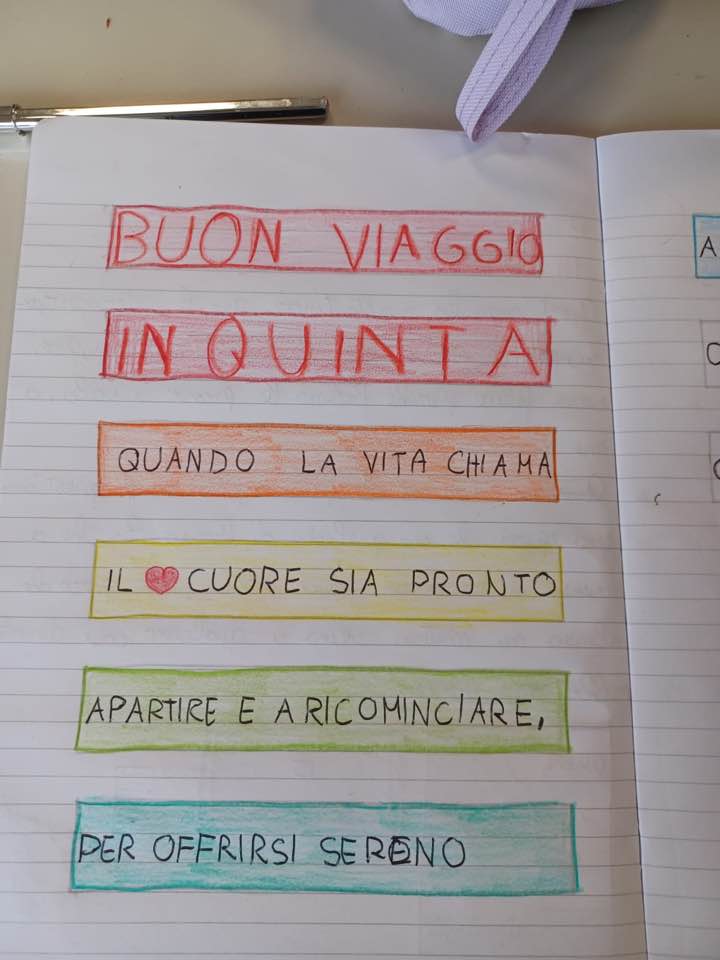 BUON VIAGGIO
IN QUINTA
QUANDO LA VITA CHIAMA
IL CUORE SIA PRONTO
APARTIRE E A RICOMINCIARE,
PER OFFRIRSI SERENO
A